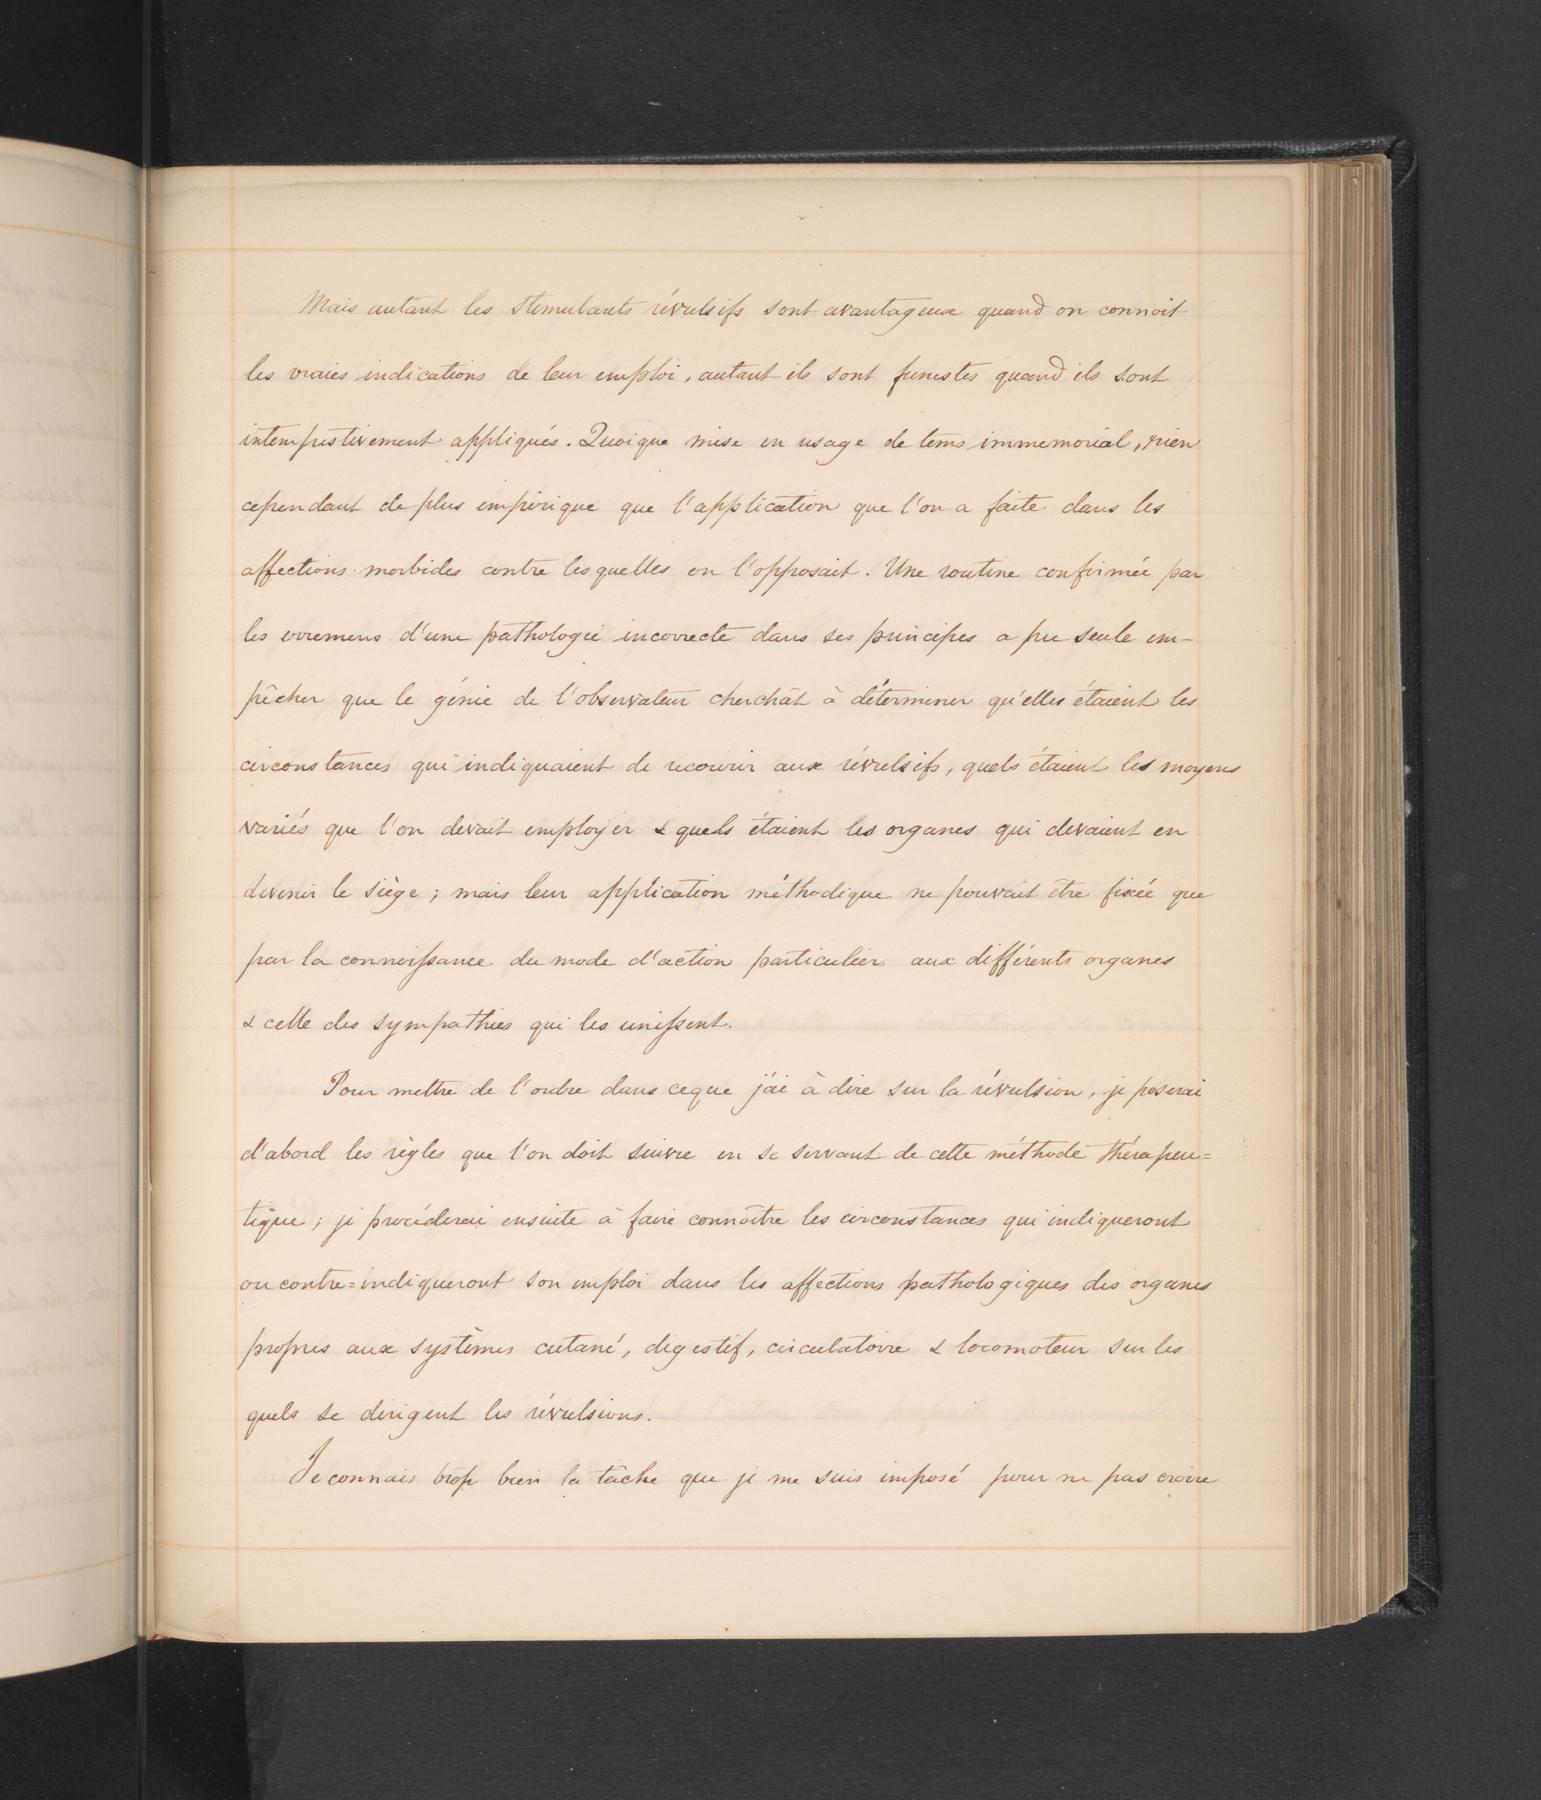 Mais autant les stimulants révulsifs sont avantageux quand on connoit
les vraies indications de leur emploi, autant ils sont funestes quand ils sont
intempestivement appliqués. Quoique mise en usage de tems immemorial, rien
cependant de plus empirique que l'application que l'on a faite dans les
affections morbides contre lesquelles on l'opposait. Une routine confirmée par
les erremens d'une pathologie incorrecte dans ses principes a pu seule em-
pêcher que le génie de l'observateur cherchât à déterminer qu'elles étaient les
circonstances qui indiquaient de recourir aux révulsifs, quels étaient les moyens
variés que l'on devait employer & quels étaient les organes qui devaient en
devenir le siège ; mais leur application méthodique ne pouvait être fixée que
par la connoissance du mode d'action particulier aux différents organes
& celle des sympathies qui les unissent.
Pour mettre de l'ordre dans ceque j'ai à dire sur la révulsion, je poserai
d'abord les règles que l'on doit suivre en se servant de cette méthode thérapeu=
tique ; je procéderai ensuite à faire connoître les circonstances qui indiqueront
ou contre=indiqueront son emploi dans les affections pathologiques des organes
propres aux systèmes cutané, digestif, circulatoire & locomoteur sur les
quels se dirigent les révulsions.
Je connais trop bien la tâche que je me suis imposé pour ne pas croire